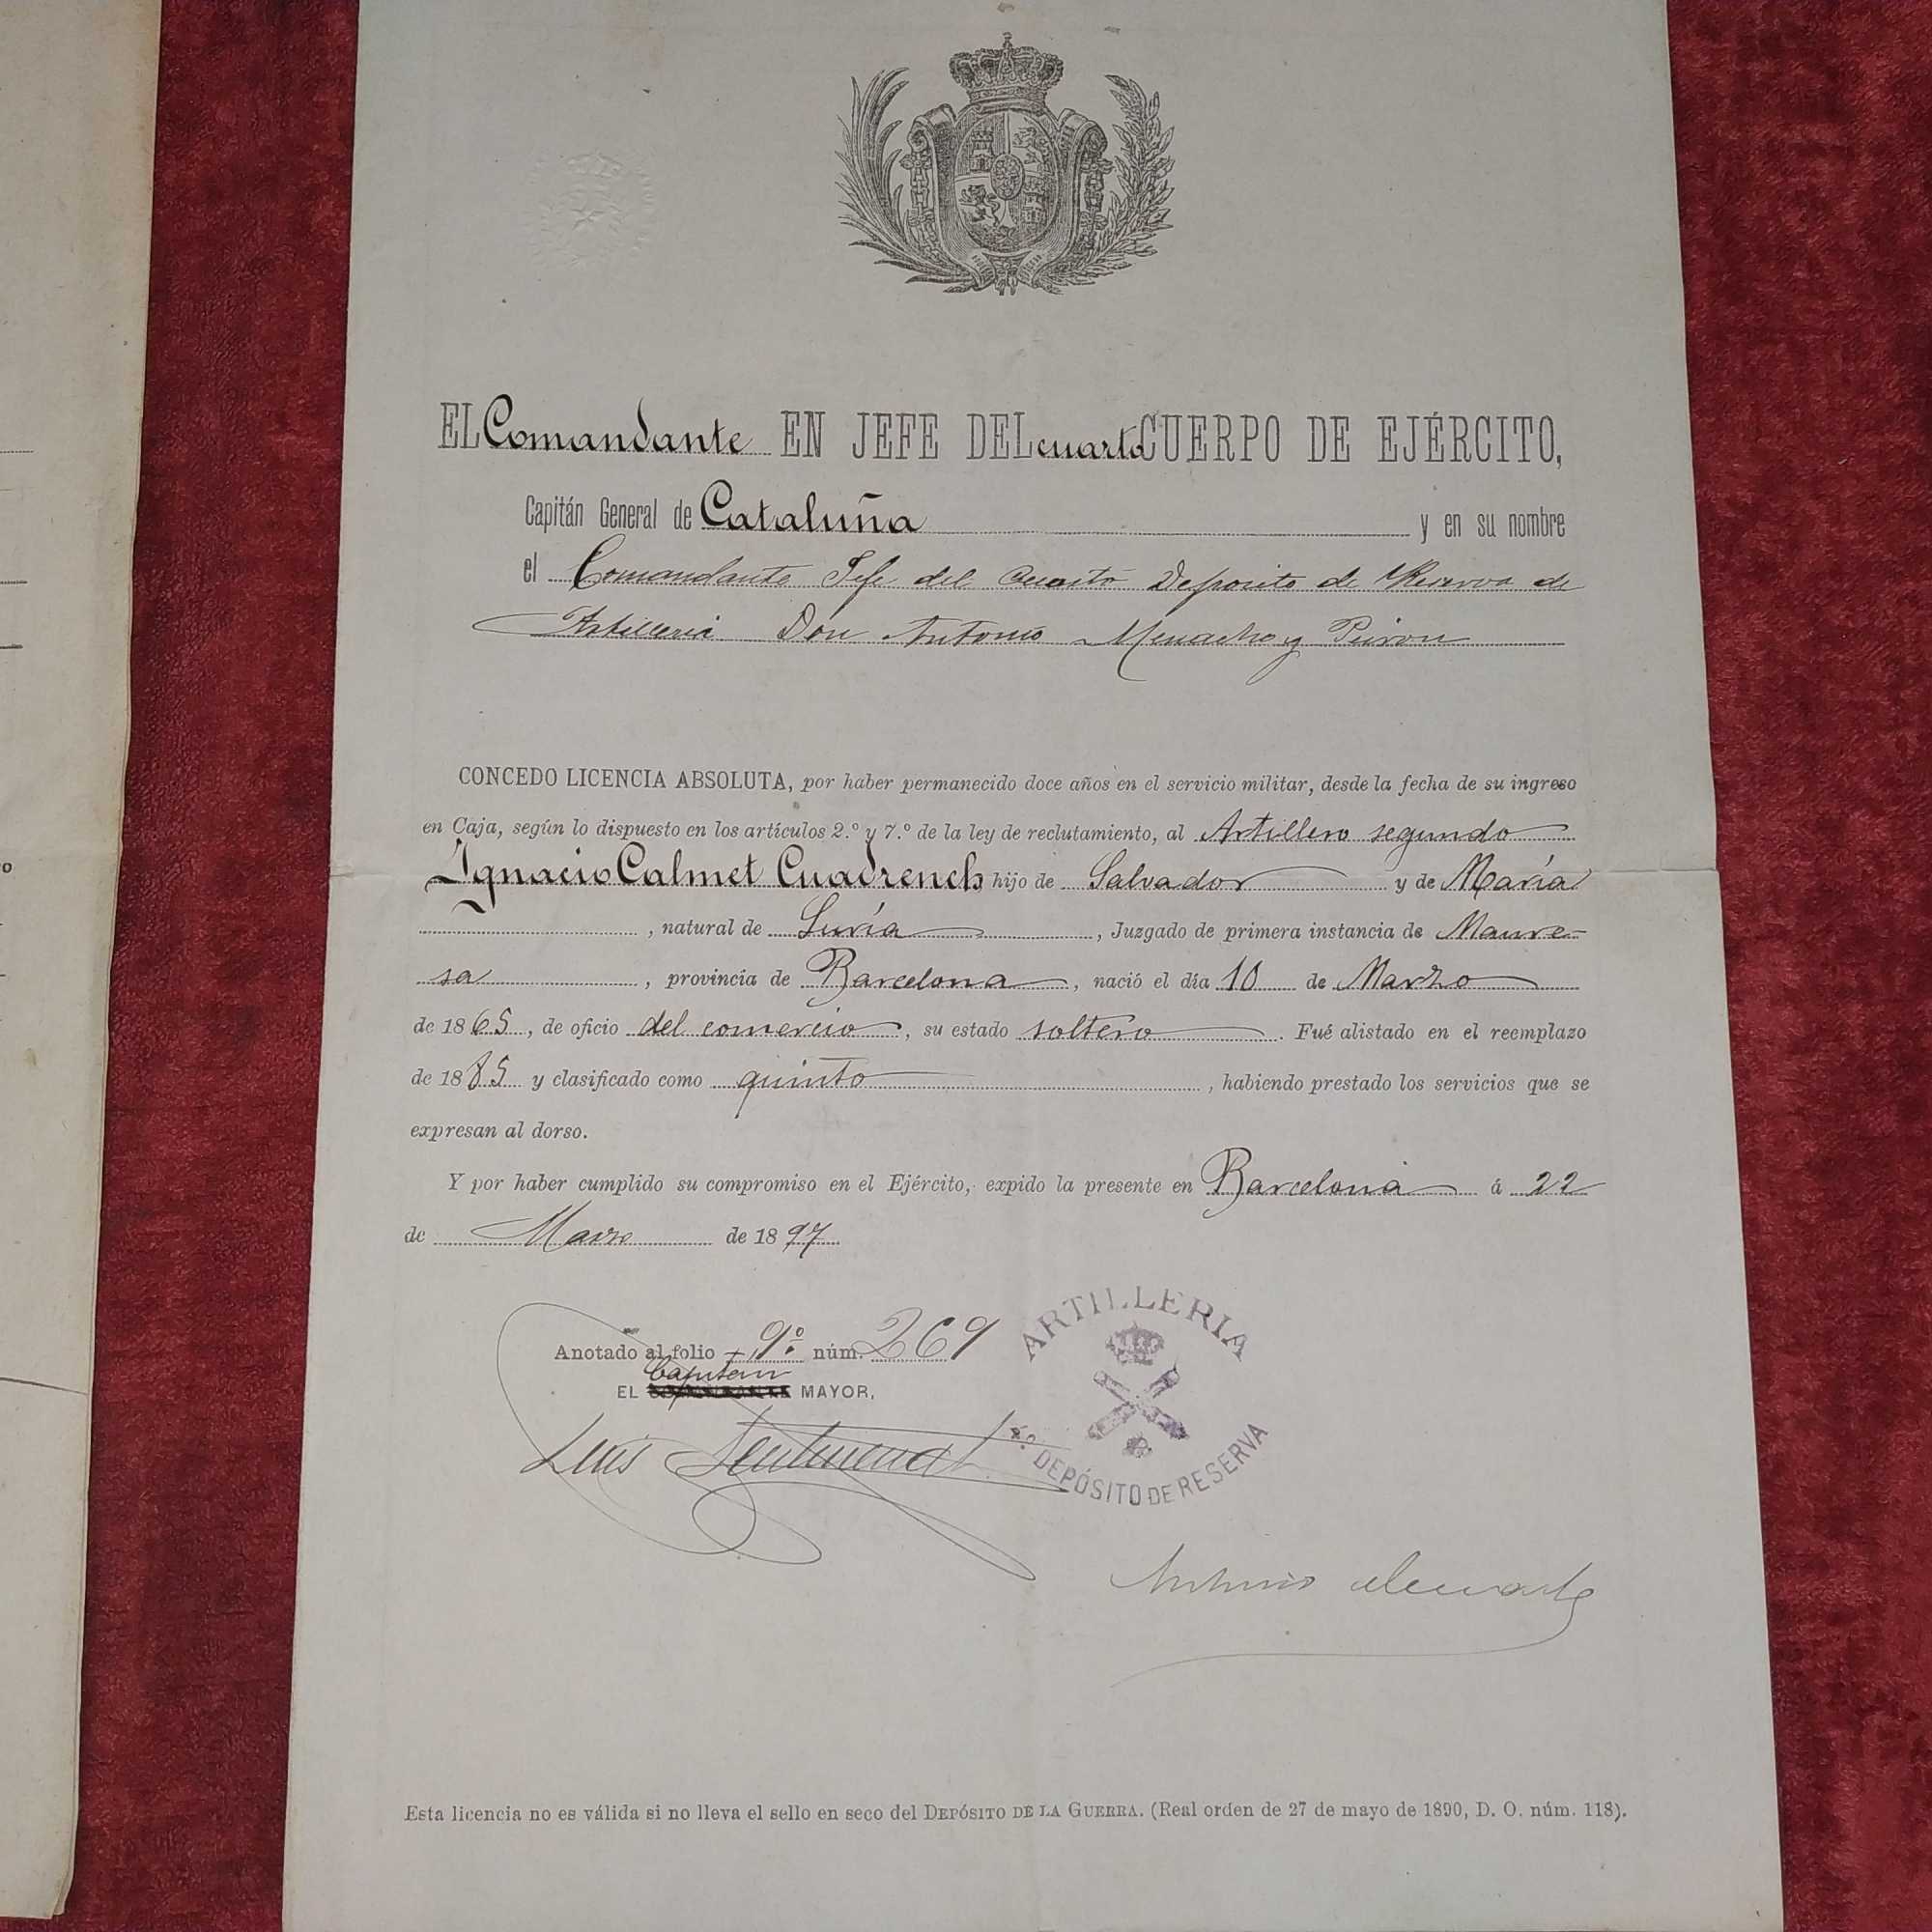 EL Comandante EN JEFE DEL cuarto CUERPO DE EJÉRCITO,
Capitán General de Cataluña y en su nombre
el Comandante Jefe del Cuarto Deposito de Reserva de
Artilleria Don Antonio Menacho y Peiron
CONCEDO LICENCIA ABSOLUTA, por haber permanecido doce años en el servicio militar, desde la fecha de su ingreso
en Caja, según lo dispuesto en los artículos 2.º y 7.º de la ley de reclutamiento, al Artillero segundo
Ignacio Calmet Cuadrench hijo de Salvador y de María
, natural de Suría, Juzgado de primera instancia de Manre-
sa, provincia de Barcelona, nació el día 10 de Marzo
de 1865, de oficio del comercio, su estado soltero. Fué alistado en el reemplazo
de 1885 y clasificado como quinto, habiendo prestado los servicios que se
expresan al dorso.
Y por haber cumplido su compromiso en el Ejército, expido la presente en Barcelona á 22
de Marzo de 1897.
Anotado al folio 9º núm. 269
Capitan
EL COMANDANTE MAYOR,
Luis Sentmenat
ARTILLERIA
4º DEPÓSITO DE RESERVA
Antonio Menacho
Esta licencia no es válida si no lleva el sello en seco del DEPÓSITO DE LA GUERRA. (Real orden de 27 de mayo de 1890, D. O. núm. 118).